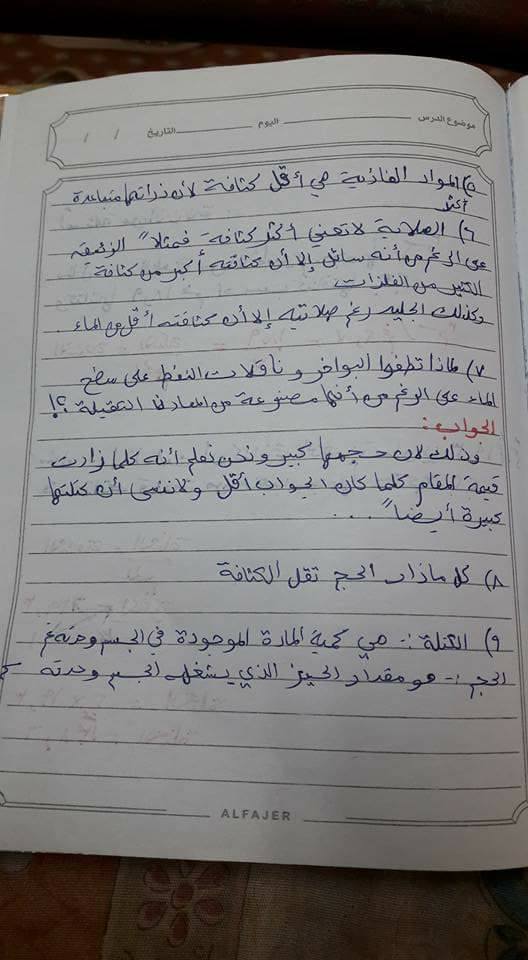 موضوع الدرس اليوم التاريخ / /
٥) المواد الغازية هي أقل كثافة لأن ذراتها متباعدة
أكثر
٦) الصلابة لا تعني أكثر كثافة فمثلاً " الزئبق
على الرغم من أنه سائل إلا أن كثافته أكبر من كثافة
الكثير من الفلزات
وكذلك الجليد رغم صلابته إلا أن كثافته أقل من الماء .
٧) لماذا تطفوا البواخر وناقلات النفط على سطح
الماء على الرغم من أنها مصنوعة من المعادن الثقيلة ؟!
الجواب :
وذلك لان حجمها كبير ونحن نعلم أنه كلما زادت
قيمة المقام كلما كان الجواب أقل ولا ننسى أن كتلتها
كبيرة أيضاً " ...
٨) كل ماذاد الحجم تقل الكثافة
٩) الكتلة :- هي كمية المادة الموجودة في الجسم وحدته غم
الحجم :- هو مقدار الحيز الذي يشغله الجسم وحدته
ALFAJER